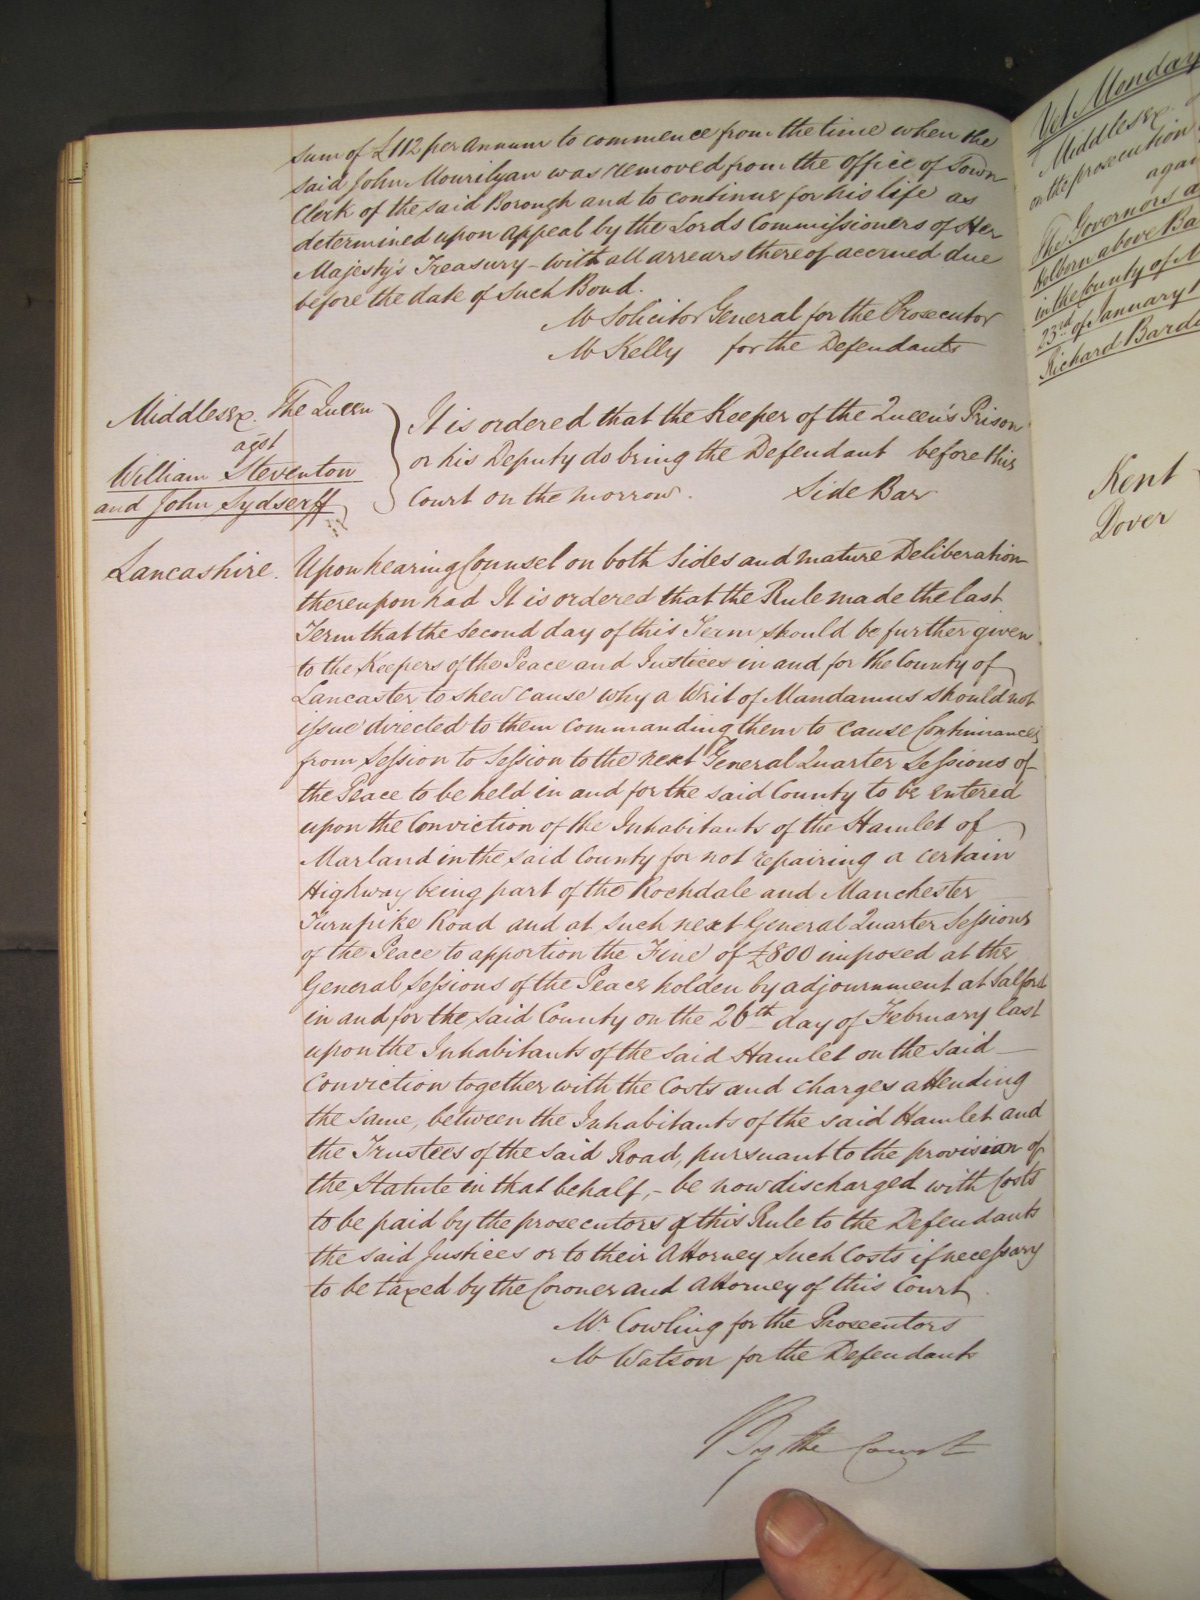 sum of £112 per Annum to commence from the time when the
said John Mourilyan was removed from the office of Town
Clerk of the said Borough and to continue for his life as
determined upon appeal by the Lords Commissioners of Her
Majesty's Treasury - with all arrears thereof accrued due
before the date of such Bond.
Mr Solicitor General for the Prosecutor
Mr Kelly for the Defendants
Middlesex. The Queen
agst
William Steventon
and John Sydserff
It is ordered that the Keeper of the Queen's Prison
or his Deputy do bring the Defendant before this
Court on the morrow. Side Bar
Lancashire.
Upon hearing Counsel on both sides and mature Deliberation
thereupon had It is ordered that the Rule made the last
Term that the second day of this Term should be further given
to the Keepers of the Peace and Justices in and for the County of
Lancaster to shew cause why a Writ of Mandamus should not
issue directed to them commanding them to cause Continuances
from Session to Session to the next General Quarter Sessions of
the Peace to be held in and for the said County to be entered
upon the Conviction of the Inhabitants of the Hamlet of
Marland in the said County for not repairing a certain
Highway being part of the Rochdale and Manchester
Turnpike Road and at such next General Quarter Sessions
of the Peace to apportion the Fine of £800 imposed at the
General Sessions of the Peace holden by adjournment at Salford
in and for the said County on the 26th day of February last
upon the Inhabitants of the said Hamlet on the said
Conviction together with the Costs and charges attending
the same, between the Inhabitants of the said Hamlet and
the Trustees of the said Road, pursuant to the provision of
the Statute in that behalf, - be now discharged with Costs
to be paid by the prosecutors of this Rule to the Defendants
the said Justices or to their Attorney such Costs if necessary
to be taxed by the Coroner and Attorney of this Court.
Mr. Cowling for the Prosecutors
Mr Watson for the Defendants
By the Court
Monday
Middlesex.
on the prosecution
The Governors
Holborn above
in the County of
23rd of January
Richard
Kent
Dover